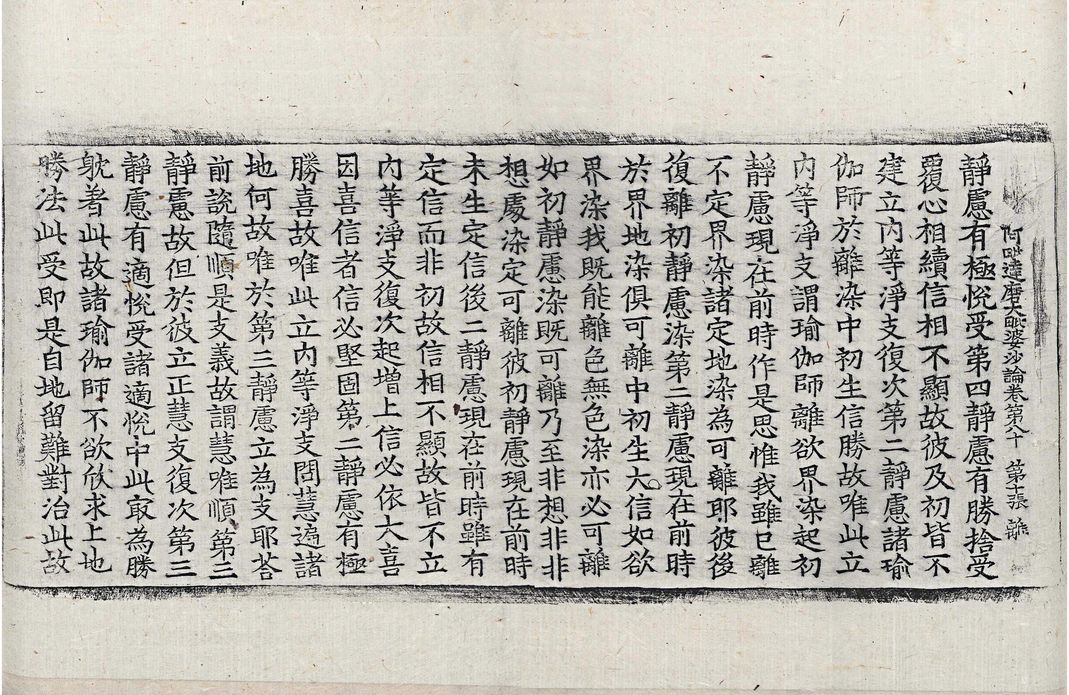 阿毗達磨大毗婆沙論卷第八十 第十張 離
靜慮有極悅受第四靜慮有勝捨受
覆心相續信相不顯故彼及初皆不
建立內等淨支復次第二靜慮諸瑜
伽師於離染中初生信勝故唯此立
內等淨支謂瑜伽師離欲界染起初
靜慮現在前時作是思惟我雖已離
不定界染諸定地染為可離耶彼後
復離初靜慮染第二靜慮現在前時
於界地染俱可離中初生大信如欲
界染我既能離色無色染亦必可離
如初靜慮染既可離乃至非想非非
想處染定可離彼初靜慮現在前時
未生定信後二靜慮現在前時雖有
定信而非初故信相不顯故皆不立
內等淨支復次起增上信必依大喜
因喜信者信必堅固第二靜慮有極
勝喜故唯此立內等淨支問慧遍諸
地何故唯於第三靜慮立為支耶荅
前說隨順是支義故謂慧唯順第三
靜慮故但於彼立正慧支復次第三
靜慮有適悅受諸適悅中此冣為勝
躭著此故諸瑜伽師不欲欣求上地
勝法此受即是自地留難對治此故